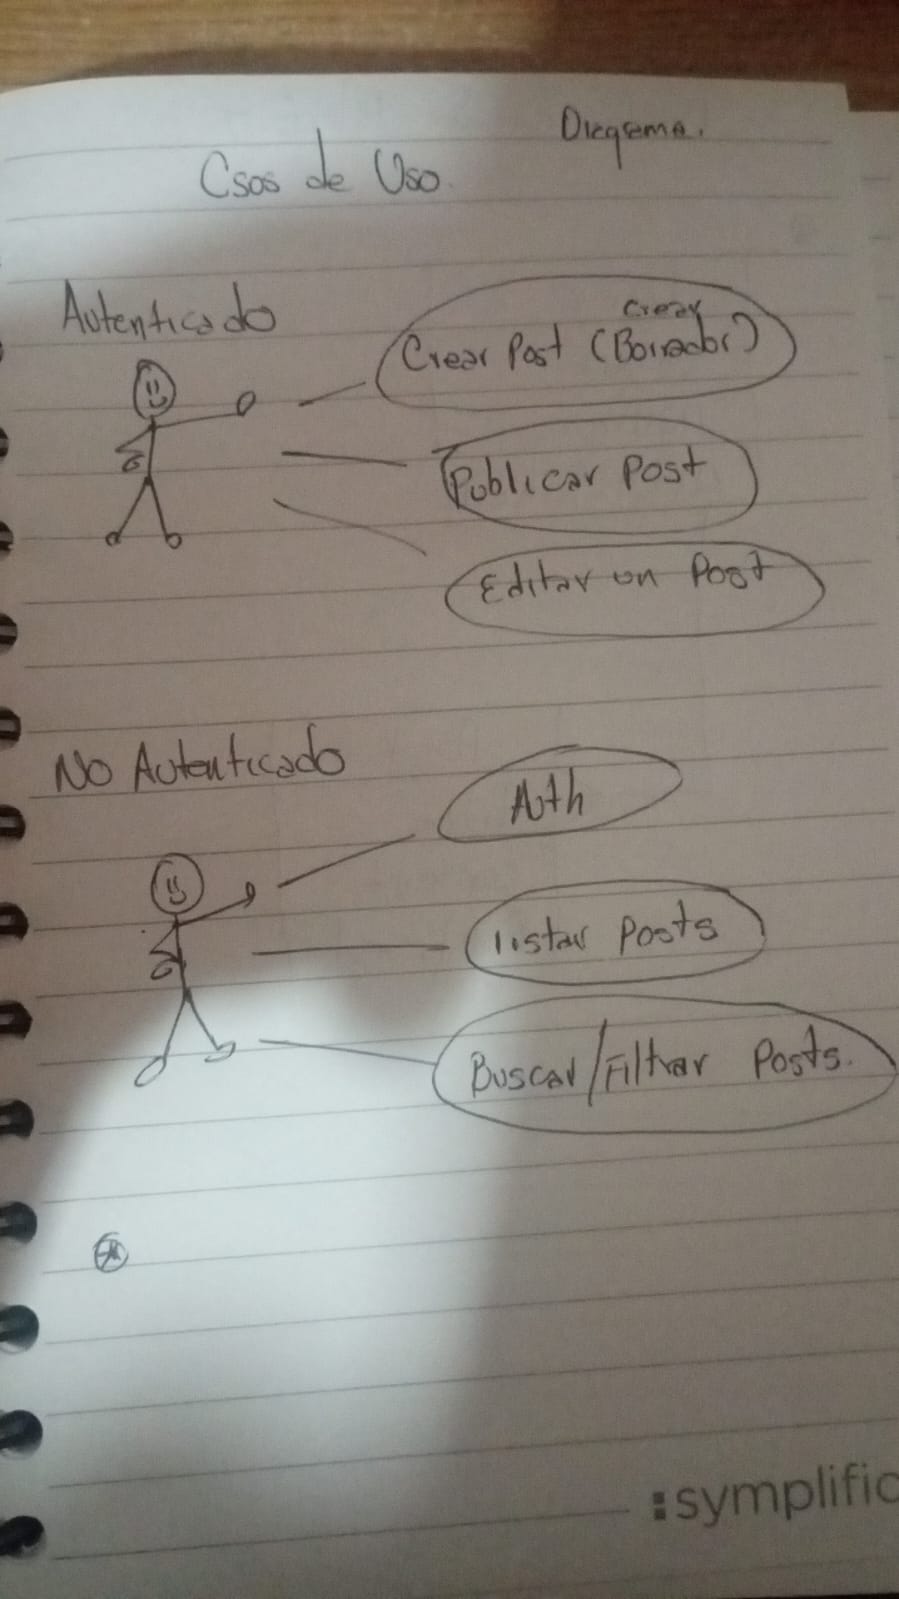 Diagrama.
Csos de Uso.
Autenticado
Crear
Crear Post (Borrador)
Publicar Post
Editar un Post
No Autenticado
Auth
listar Posts
Buscar/Filtrar Posts.
symplific